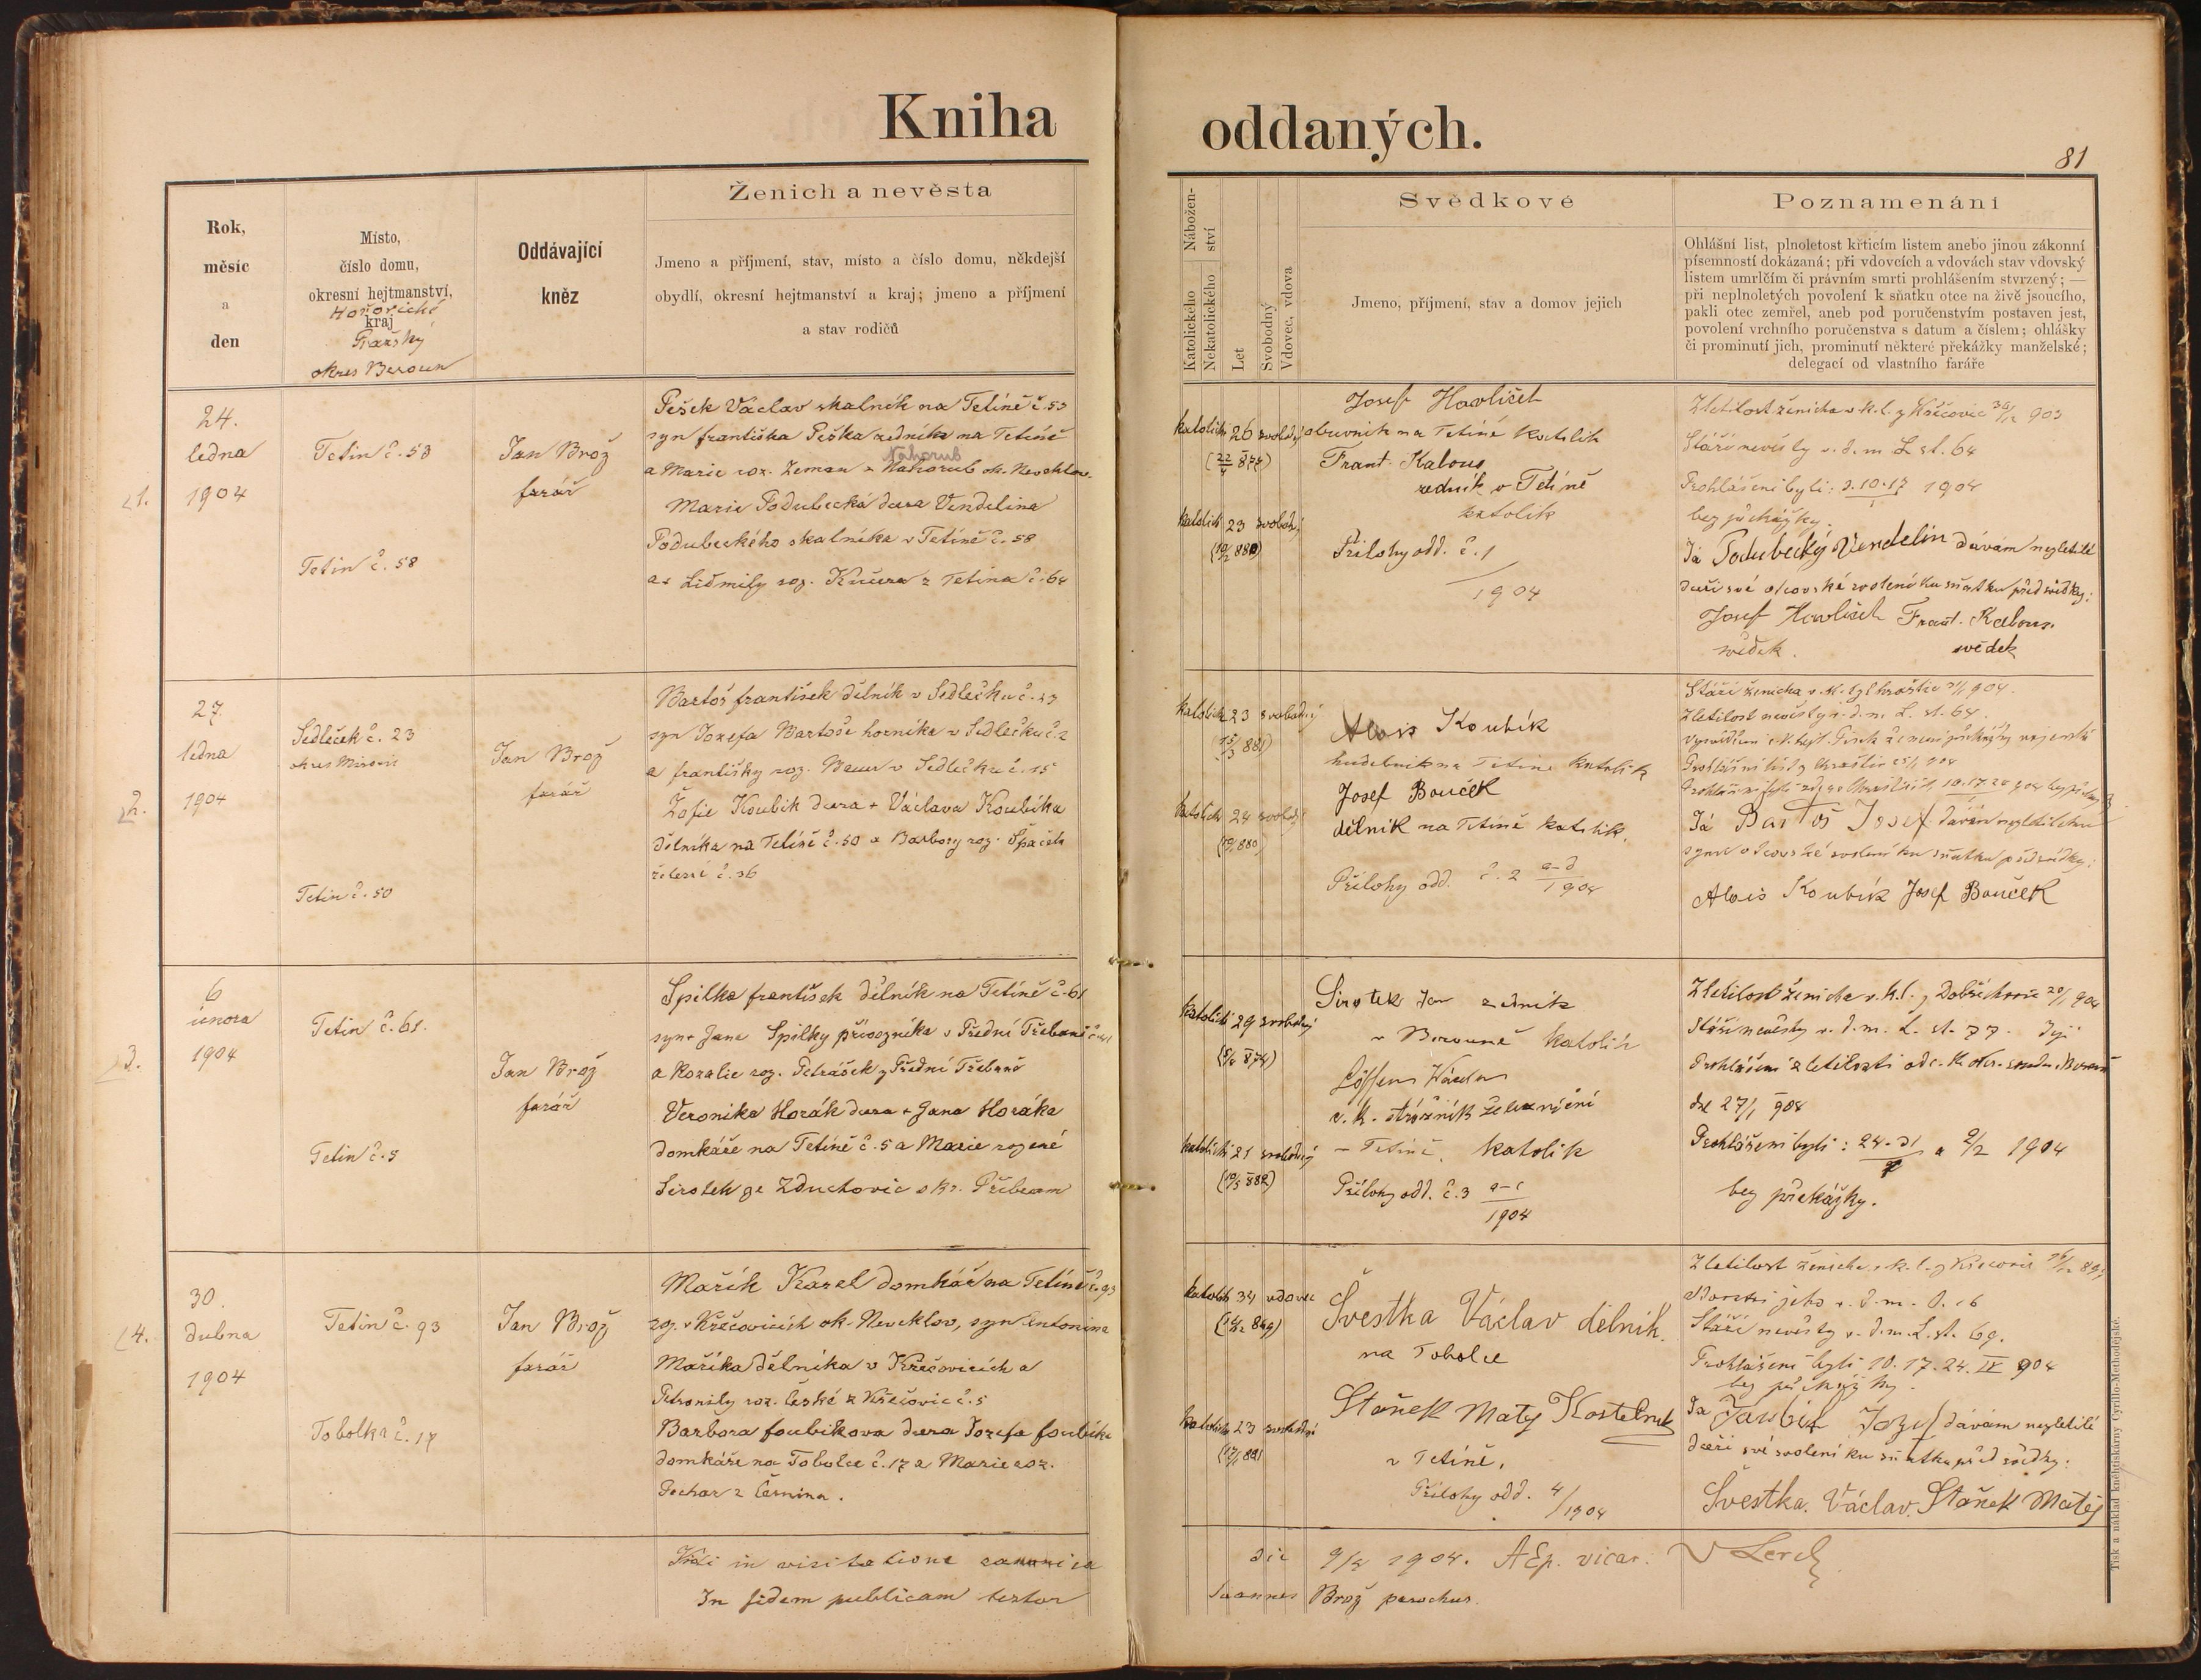 Kniha oddaných.
81
Rok,
měsíc
a
den
Místo,
číslo domu,
okresní hejtmanství,
Hořovické
kraj
Pražský
okres Beroun
Oddávající
kněz
Ženich a nevěsta
Jmeno a příjmení, stav, místo a číslo domu, někdejší
obydlí, okresní hejtmanství a kraj; jmeno a příjmení
a stav rodičů
Nábožen-
ství
Katolického
Nekatolického
Let
Svobodný
Vdovec, vdova
Svědkové
Jmeno, příjmení, stav a domov jejich
Poznamenání
Ohlášní list, plnoletost křticím listem anebo jinou zákonní
písemností dokázaná; při vdovcích a vdovách stav vdovský
listem umrlčím či právním smrti prohlášením stvrzený; —
při neplnoletých povolení k sňatku otce na živě jsoucího,
pakli otec zemřel, aneb pod poručenstvím postaven jest,
povolení vrchního poručenstva s datum a číslem; ohlášky
či prominutí jich, prominutí některé překážky manželské;
delegací od vlastního faráře
1.
24.
ledna
1904
Tetín č. 53
Tetín č. 58
Jan Brož
farář
Pešek Václav skalník na Tetíně č. 53
syn františka Peška zedníka na Tetíně
Náhorub
a Marie roz. Zeman z Nahorub ok. Neveklov.
Marie Podubecká dcera Vendelína
Podubeckého skalníka v Tetíně č. 58
a + Lidmily roz. Kučera z Tetína č. 64
katolick 26 svobodný
(22/4 877)
katolick 23 svobodný
(10/2 880)
Josef Havlíček
obuvník na Tetíně katolík
Frant. Kalous
zedník v Tetíně
katolík
Přílohy odd. č. 1
1904
Zletilost ženicha v k. l. z Křečovic 903
Stáří nevěsty v. d. m. L st. 64
Prohlášeni byli: 3. 10. 17 1904
bez překážky.
Já Podubecký Vendelín dávám nezletilé
dceři své otcovské svolení ku sňatku před svědky:
Josef Havlíček Frant. Kalous.
svědek. svědek
2.
27.
ledna
1904
Sedleček č. 23
okres Mirovic
Tetín č. 50
Jan Brož
farář
Bartoš františek dělník v Sedlečku č. 23
syn Josefa Bartoše horníka v Sedlečku č. 2
a františky roz. Baur v Sedlečku č. 15
Žofie Koubík dcera + Václava Koubíka
dělníka na Tetíně č. 50 a Barbory roz. Špaček
č. 36
katolick 23 svobodný
(15/3 881)
katolick 24 svobodný
Alois Koubík
hudebník na Tetíně katolík
Josef Bouček
dělník na Tetíně katolík.
Přílohy odd. č. 2 a-d
1904
Stáří ženicha v. 904.
Zletilost nevěsty v. d. m. L. st. 64.
Já Bartoš Josef dávám nezletilému
synu otcovské svolení ku sňatku před svědky:
Alois Koubík Josef Bouček
3.
6
února
1904
Tetín č. 61.
Tetín č. 5
Jan Brož
farář
Spilka františek dělník na Tetíně č. 61
syn + Jana Spilky převozníka v Přední Třebani č. 41
a Rozalie roz. Petrášek z Přední Třebaně
Veronika Horák dcera + Jana Horáka
domkáře na Tetíně č. 5 a Marie rozené
Sirotek ze Zduchovic okr. Příbram
katolick 29 svobodný
katolick 21 svobodný
(19/3 882)
Sirotek Jan zedník
v Berouně katolík
c. k. strážník železniční
v Tetíně. katolík
Přílohy odd. č. 3 a-c
1904
Zletilost ženicha v. k. l. z Dobřichovic 20/1 904
Stáří nevěsty v. d. m. L. st. 77. Její
Prohlášení zletilosti od c. k. okr. soudu Beroun
dne 27/1 904
Prohlášeni byli: 24. 31 a 2/2 1904
bez překážky.
4.
30.
dubna
1904
Tetín č. 93
Tobolka č. 17
Jan Brož
farář
Mařík Karel domkář na Tetíně č. 93
roz. v Křečovicích ok. Neveklov, syn Antonína
Maříka dělníka v Křečovicích a
Petronily roz. České z Křečovic č. 5
Barbora foubikova dcera Josefa foubíka
domkáře na Tobolce č. 17 a Marie roz.
Pochar z Černína.
katolick 34 vdovec
(14/12 869)
katolick 23 svobodná
Švestka Václav dělník.
na Tobolce
Staněk Matěj Kostelník
v Tetíně.
Přílohy odd. 4/1904
Zletilost ženicha v k. l. z Křečovic
Stáří nevěsty v. d. m. L. st. 69.
Prohlášeni byli 10. 17. 24. IV 904
bez překážky.
Já Joubík Jozef dávám nezletilé
dceři své svolení ku sňatku před svědky:
Švestka. Václav. Staněk Matěj
Vidi in visitatione canonica die 9/5 1904. AEp. vicar. V Lerch
In fidem publicam testor Joannes Brož parochus.
Tisk a náklad knihtiskárny Cyrillo-Methodějské.